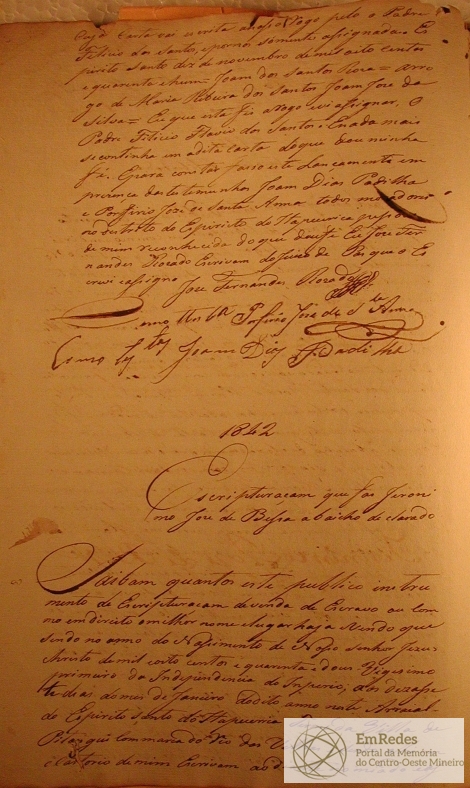 Cuja Carta vai escrita a meo Rogo pelo o Padre
Felicio dos Santos, e por nos somente assignada. Es
pirito Santo dez de novembro de mil oito centos
e quarenta e hum = Joam dos Santos Rosa = Arro
go de Maria Ribeira dos Santos Joam Jose da
Silva = Eu que esta fis a rogo e vi assignar. O
Padre Filicio Flavio dos Santos. E nada mais
se continha em a dita Carta de que dou minha
fé. E para constar fasso este Lancamento em
prezenca das testemunhas Joam Dias Padilha
e Porfirio Jose de Santa Anna todos moradores
no destrito do Espirito do Itapicirica
de mim reconhecida do que dou fé Eu Jose Fer
nandes Rocado Escrivam do Juizo de Pas que o Es
crevi e assigno
Jose Fernandes Rocado
Porfirio Jose de S.ta Anna
Como Joam Dias Padilha
1842
Escripturacam que fas Jeroni
mo Jose de Bessa abaicho declarado
Saibam quantos este publico instru
mento de Escripturacam de venda de Escravo ou Com
no em direito milhor nome e lugar haja Virem que
sendo no anno do Nassimento de Nosso Senhor Jezu
Christo de mil oito centos e quarenta e dous Vigesimo
primeiro da Independencia do Imperio, aos dezasse
te dias do mes de Janeiro do dito anno neste Arraial
do Espirito Santo do Itapicirica
Comarca do Rio das
de mim Escrivam
EmRedes
Portal da Memória
do Centro-Oeste Mineiro